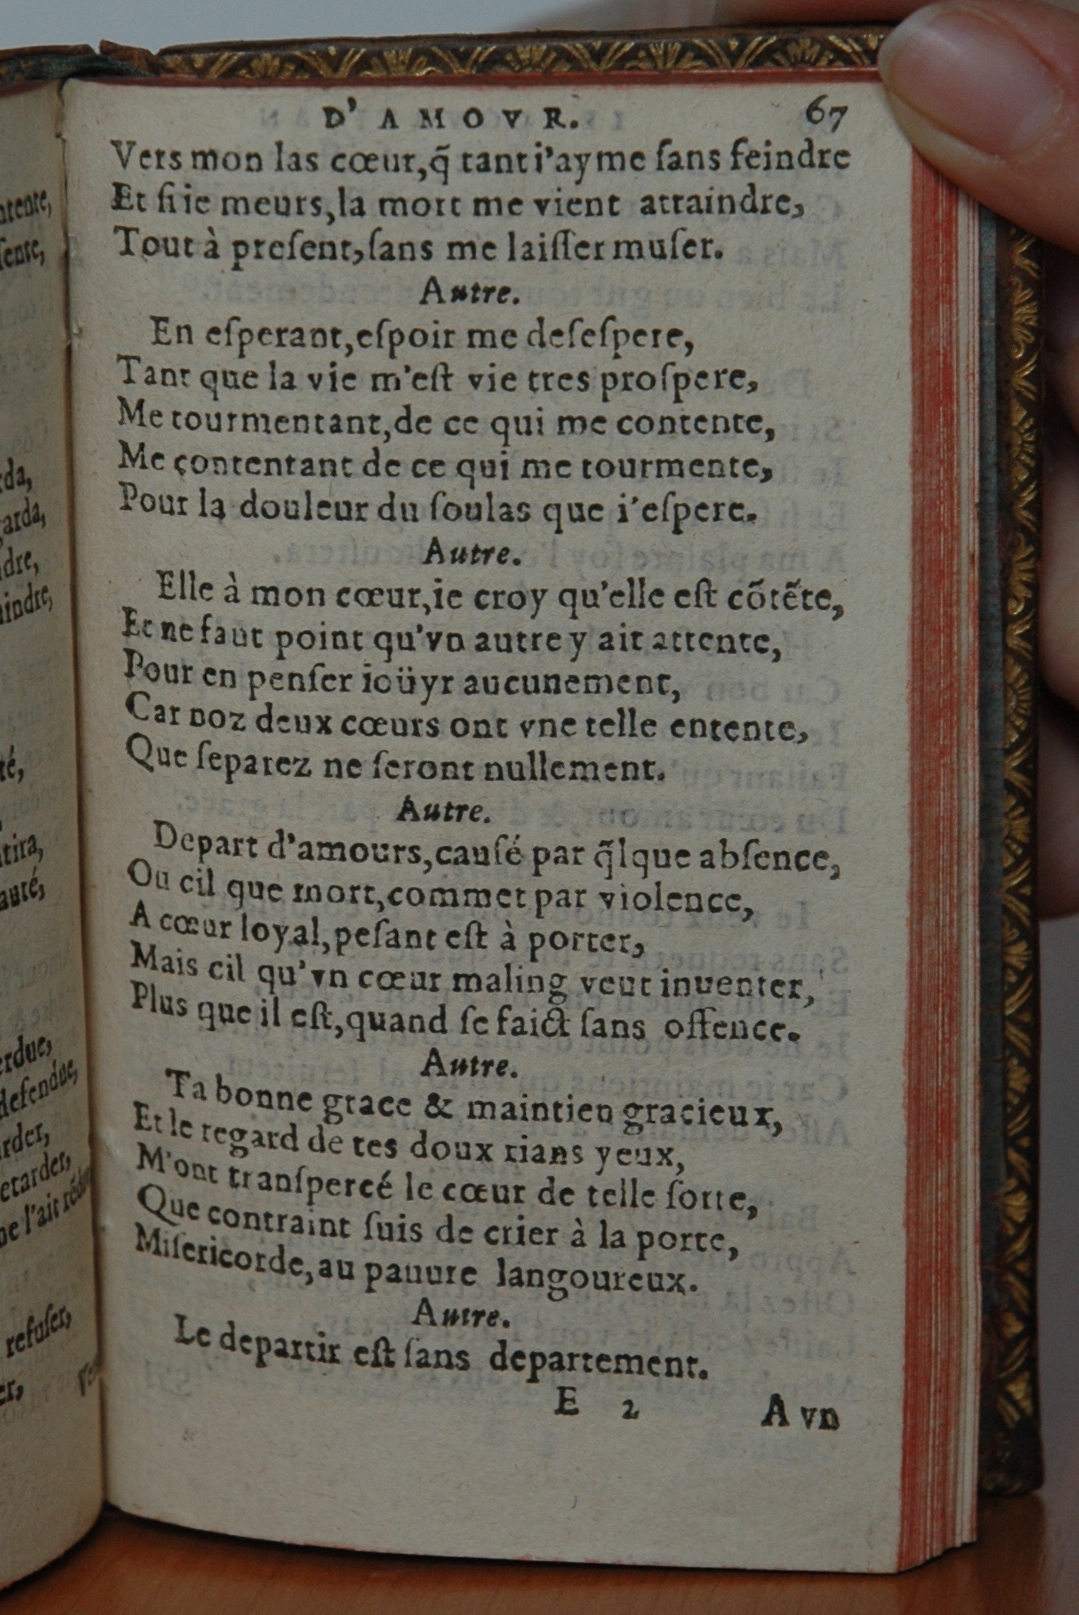 D' AMOVR. 67
Vers mon las cœur, q̃ tant i'ayme ſans feindre
Et ſi ie meurs, la mort me vient attaindre,
Tout à preſent, ſans me laiſſer muſer.
Autre.
En eſperant, eſpoir me deſeſpere,
Tant que la vie m'eſt vie tres proſpere,
Me tourmentant, de ce qui me contente,
Me contentant de ce qui me tourmente,
Pour la douleur du ſoulas que i'eſpere.
Autre.
Elle à mon cœur, ie croy qu'elle eſt cõtẽte,
Et ne faut point qu'vn autre y ait attente,
Pour en penſer ioüyr aucunement,
Car noz deux cœurs ont vne telle entente,
Que ſeparez ne ſeront nullement.
Autre.
Depart d'amours, cauſé par q̃lque abſence,
Ou cil que mort, commet par violence,
A cœur loyal, peſant eſt à porter,
Mais cil qu'vn cœur maling veut inuenter,
Plus que il eſt, quand ſe faict ſans offence.
Autre.
Ta bonne grace & maintien gracieux,
Et le regard de tes doux rians yeux,
M'ont tranſpercé le cœur de telle ſorte,
Que contraint ſuis de crier à la porte,
Miſericorde, au pauure langoureux.
Autre.
Le departir eſt ſans departement.
E 2 A vn